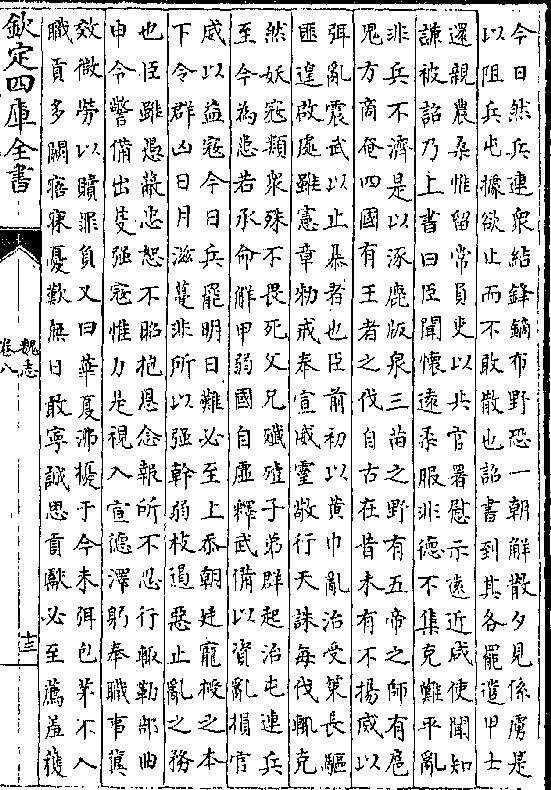 今日然兵連衆結鋒鏑布野恐一朝解散夕見係虜是
以阻兵屯據欲止而不敢散也詔書到其各罷遣甲士
還親農桑惟留常員吏以共官署慰示遠近咸使聞知
謙被詔乃上書曰臣聞懷遠柔服非德不集克難平亂
非兵不濟是以涿鹿版泉三苗之野有五帝之師有扈
鬼方商奄四國有王者之伐自古在昔未有不揚威以
弭亂震武以止暴者也臣前初以黄巾亂治受策長驅
匪遑啟處雖憲章勑戒奉宣威靈敬行天誅每伐輒克
然妖寇類衆殊不畏死父兄殲殪子弟群起治屯連兵
至今為患若承命解甲弱國自虚釋武備以資亂損官
威以益寇今日兵罷明日難必至上忝朝廷寵授之本
下令群凶日月滋蔓非所以强幹弱枝遏惡止亂之務
也臣雖愚蔽忠恕不昭抱恩念報所不忍行輒勒部曲
申令警備出芟强寇惟力是視入宣德澤躬奉職事冀
效微勞以贖罪負又曰華夏沸擾于今未弭包茅不入
職貢多闕寤寐憂歎無日敢寧誠思貢獻必至薦羞獲
欽定四庫全書
魏志
卷八
十三